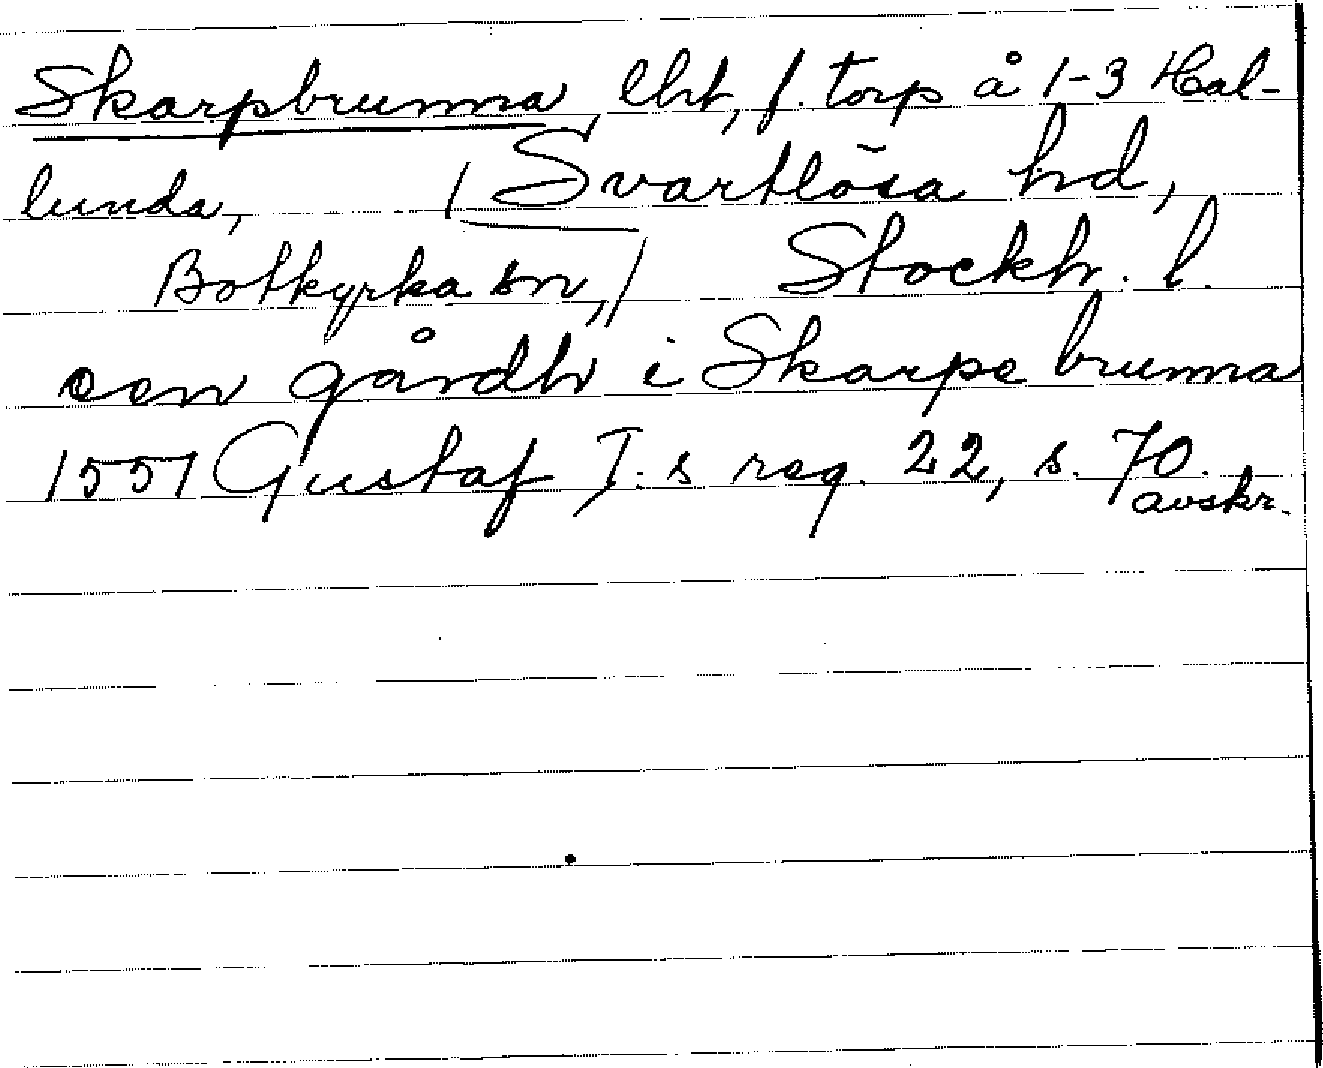 Skarpbrunna, lht, f. torp å 1-3 Hal-
lunda, / Svartlösa hd,
Botkyrka sn, / Stockh. l.
een gårdh i Skarpe brunna
1551 Gustaf I:s reg. 22, s. 70.
avskr.